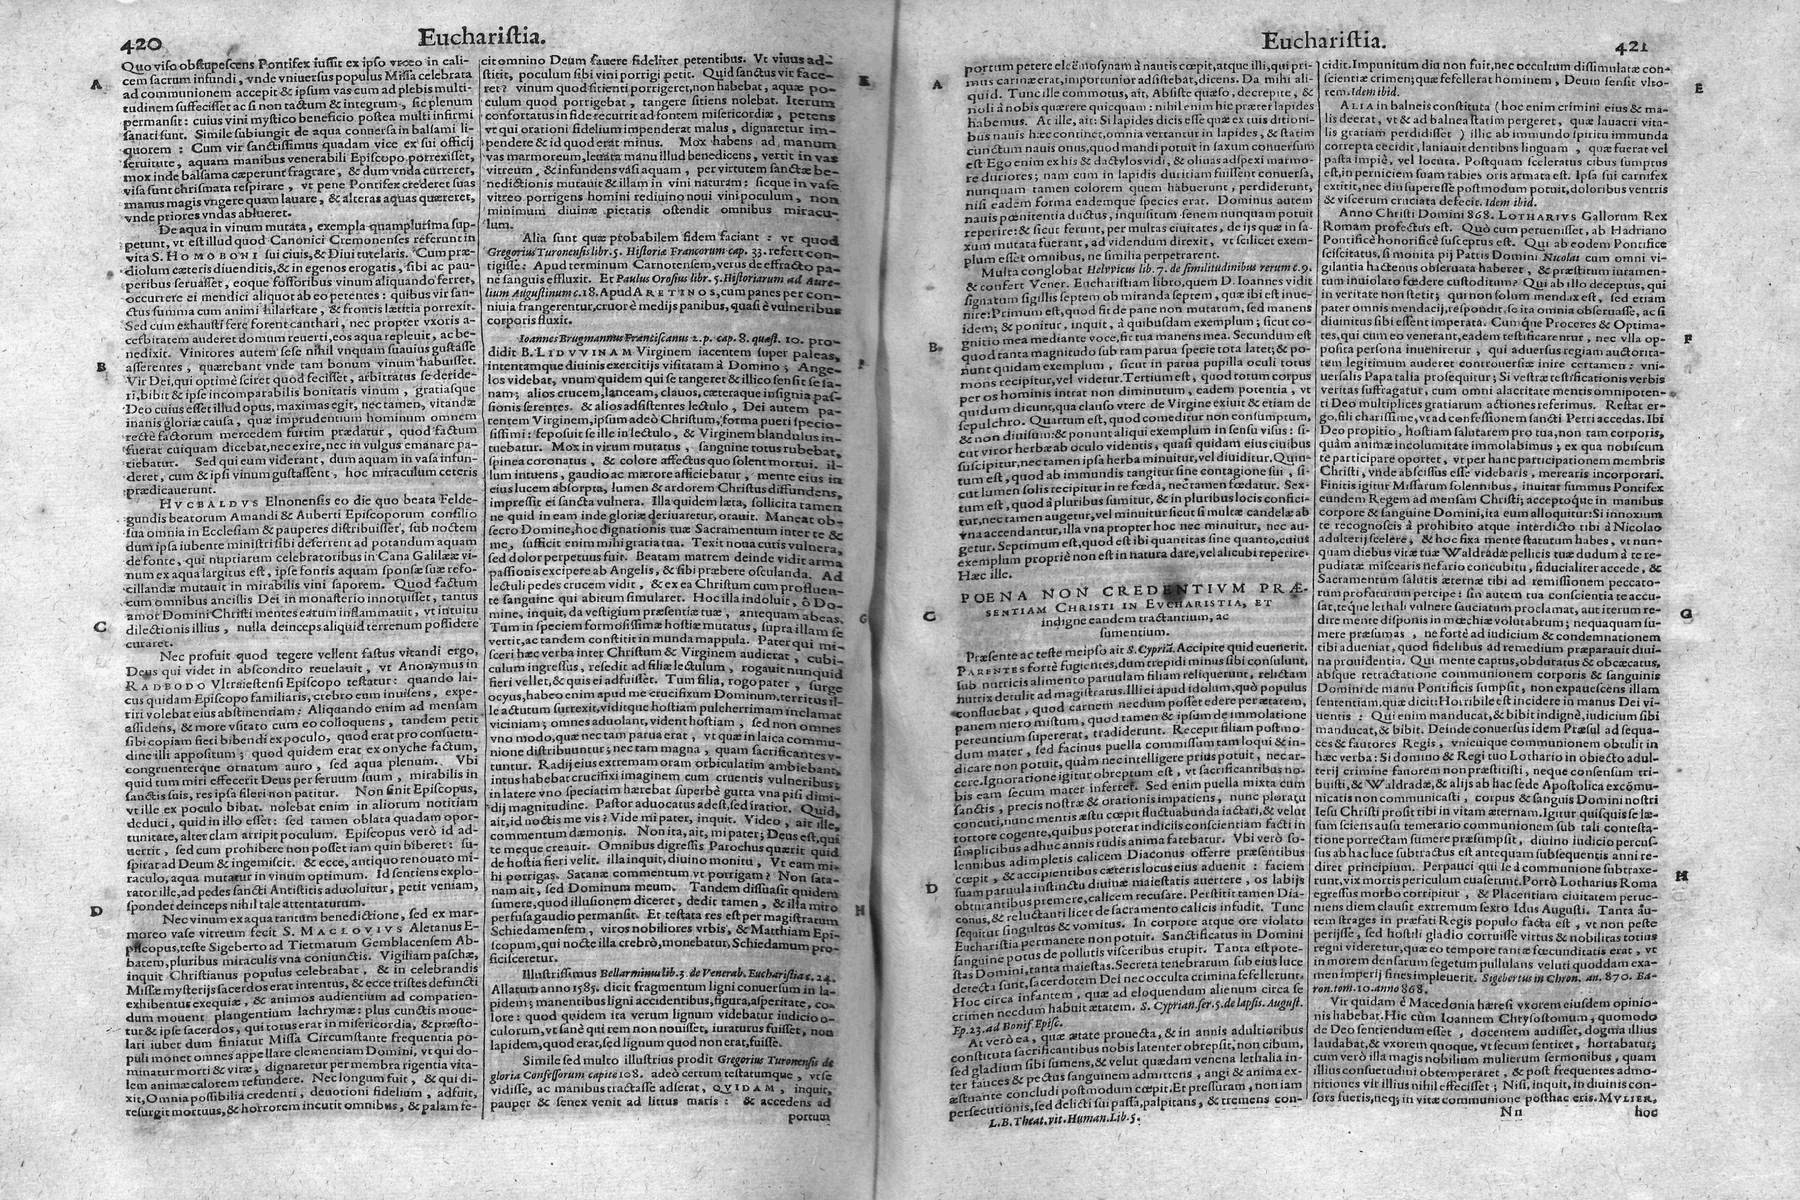 420
Euchariſtia.
Quo viſo obſtupeſcens Pontifex iuſſit ex ipſo vrceo in cali-
cem ſacrum infundi, vnde vniuerſus populus Miſſa celebrata
ad communionem accepit & ipſum vas cum ad plebis multi-
tudinem ſuffeciſſet ac ſi non tactum & integrum, ſic plenum
permanſit: cuius vini myſtico beneficio poſtea multi infirmi
ſanati ſunt. Simile ſubiungit de aqua conuerſa in balſami li-
quorem: Cum vir ſanctiſſimus quadam vice ex ſui officij
ſeruitute, aquam manibus venerabili Epiſcopo porrexiſſet,
mox inde balſama cœperunt fragrare, & dum vnda curreret,
viſa ſunt chriſmata reſpirare, vt pene Pontifex crederet ſuas
manus magis vngere quam lauare, & alteras aquas quæreret,
vnde priores vndas ablueret.
De aqua in vinum mutata, exempla quamplurima ſup-
petunt, vt eſt illud quod Canonici Cremonenſes referunt in
vita S. HOMOBONI ſui ciuis, & Diui tutelaris. Cum præ-
diolum cæteris diuenditis, & in egenos erogatis, ſibi ac pau-
peribus ſeruaſſet, eoque foſſoribus vinum aliquando ferret,
occurrere ei mendici aliquot ab eo petentes: quibus vir ſan-
ctus ſumma cum animi hilaritate, & frontis lætitia porrexit.
Sed cum exhauſti fere forent canthari, nec propter vxoris a-
cerbitatem auderet domum reuerti, eos aqua repleuit, ac be-
nedixit. Vinitores autem ſeſe nihil vnquam ſuauius guſtaſſe
aſſerentes, quærebant vnde tam bonum vinum habuiſſet.
Vir Dei, qui optimè ſciret quod feciſſet, arbitratus ſe deride-
ri, bibit & ipſe incomparabilis bonitatis vinum, gratiaſque
Deo cuius eſſet illud opus, maximas egit, nec tamen, vitandæ
inanis gloriæ cauſa, quæ imprudentium hominum omnem
rectè factorum mercedem furtim prædatur, quod factum
fuerat cuiquam dicebat, nec exire, nec in vulgus emanare pa-
tiebatur. Sed qui eum viderant, dum aquam in vaſa infun-
deret, cum & ipſi vinum guſtaſſent, hoc miraculum ceteris
prædicauerunt.
HVCBALDVS Elnonenſis eo die quo beata Felde-
gundis beatorum Amandi & Auberti Epiſcoporum conſilio
ſua omnia in Eccleſiam & pauperes diſtribuiſſet, ſub noctem
dum ipſa iubente miniſtri ſibi deferrent ad potandum aquam
de fonte, qui nuptiarum celebratoribus in Cana Galilææ vi-
num ex aqua largitus eſt, ipſe fontis aquam ſponſæ ſuæ refo-
cillandæ mutauit in mirabilis vini ſaporem. Quod factum
cum omnibus ancillis Dei in monaſterio innotuiſſet, tantus
amor Domini Chriſti mentes eatum inflammauit, vt intuitu
dilectionis illius, nulla deinceps aliquid terrenum poſſidere
curaret.
Nec profuit quod tegere vellent faſtus vitandi ergo,
Deus qui videt in abſcondito reuelauit, vt Anonymus in
RADBODO Vltraiectenſi Epiſcopo teſtatur: quando lai-
cus quidam Epiſcopo familiaris, crebro eum inuiſens, expe-
riri volebat eius abſtinentiam: Aliquando enim ad menſam
aſſidens, & more vſitato cum eo colloquens, tandem petit
ſibi copiam fieri bibendi ex poculo, quod erat pro conſuetu-
dine illi appoſitum; quod quidem erat ex onyche factum,
congruenterque ornatum auro, ſed aqua plenum. Vbi
quid tum miri effecerit Deus per ſeruum ſuum, mirabilis in
ſanctis ſuis, res ipſa ſileri non patitur. Non ſinit Epiſcopus,
vt ille ex poculo bibat. nolebat enim in aliorum notitiam
deduci, quid in illo eſſet: ſed tamen oblata quadam opor-
tunitate, alter clam arripit poculum. Epiſcopus verò id ad-
uertit, ſed cum prohibere non poſſet iam quin biberet: ſu-
ſpirat ad Deum & ingemiſcit. & ecce, antiquo renouato mi-
raculo, aqua mutatur in vinum optimum. Id ſentiens explo-
rator ille, ad pedes ſancti Antiſtitis aduoluitur, petit veniam,
ſpondet deinceps nihil tale attentaturum.
Nec vinum ex aqua tantum benedictione, ſed ex mar-
moreo vaſe vitreum fecit S. MACLOVIVS Aletanus E-
piſcopus, teſte Sigeberto ad Tietmarum Gemblacenſem Ab-
batem, pluribus miraculis vna coniunctis. Vigiliam paſchæ,
inquit Chriſtianus populus celebrabat, & in celebrandis
Miſſæ myſterijs ſacerdos erat intentus, & ecce triſtes defuncti
exhibentur exequiæ, & animos audientium ad compatien-
dum mouent plangentium lachrymæ: plus cunctis moue-
tur & ipſe ſacerdos, qui totus erat in miſericordia, & præſto-
lari iubet dum finiatur Miſſa Circumſtante frequentia po-
puli monet omnes appellare clementiam Domini, vt qui do-
minatur morti & vitæ, dignaretur per membra rigentia vita-
lem animæ calorem refundere. Nec longum fuit, & qui di-
xit, Omnia poſſibilia credenti, deuotioni fidelium, adfuit,
reſurgit mortuus, & horrorem incutit omnibus, & palam fe-
A
B
C
D
cit omnino Deum fauere fideliter petentibus. Vt viuus ad-
ſtitit, poculum ſibi vini porrigi petit. Quid ſanctus vir face-
ret? vinum quod ſitienti porrigeret, non habebat, aquæ po-
culum quod porrigebat, tangere ſitiens nolebat. Iterum
confortatus in fide recurrit ad fontem miſericordiæ, petens
vt qui orationi fidelium impenderat maius, dignaretur im-
pendere & id quod erat minus. Mox habens ad manum
vas marmoreum, leuata manu illud benedicens, vertit in vas
vitreum, & infundens vaſi aquam, per virtutem ſanctæ be-
nedictionis mutauit & illam in vini naturam: ſicque in vaſe
vitreo porrigens homini rediuiuo noui vini poculum, non
minimum diuinæ pietatis oſtendit omnibus miracu-
lum.
Alia ſunt quæ probabilem fidem faciant: vt quod
Gregorius Turonenſis libr. 5. Hiſtoriæ Francorum cap. 33. refert con-
tigiſſe: Apud terminum Carnotenſem, verus de effracto pa-
ne ſanguis effluxit. Et Paulus Oroſius libr. 5. Hiſtoriarum ad Aure-
lium Auguſtinum c. 18. Apud ARETINOS, cum panes per con-
niuia frangerentur, cruor è medijs panibus, quaſi è vulneribus
corporis fluxit.
Ioannes Brugmannus Franciſcanus 2. p. cap. 8. quæſt. 10. pro-
didit B. LIDVVINAM Virginem iacentem ſuper paleas,
intentamque diuinis exercitijs viſitatam à Domino; Ange-
los videbat, vnum quidem qui ſe tangeret & illico ſenſit ſe ſa-
nam; alios crucem, lanceam, clauos, cæteraque inſignia paſ-
ſionis ferentes. & alios adſiſtentes lectulo, Dei autem pa-
rentem Virginem, ipſum adeò Chriſtum, forma pueri ſpecio-
ſiſſimi: ſepoſuit ſe ille in lectulo, & Virginem blandulus in-
tuebatur. Mox in virum mutatus, ſanguine totus rubebat,
ſpinea coronatus, & colore affectus quo ſolent mortui. il-
lum intuens, gaudio ac mærore afficiebatur, mente eius in
eius lucem abſorpta, lumen & ardorem Chriſtus diffundens,
impreſſit ei ſancta vulnera. Illa quidem læta, ſollicita tamen
ne quid in eam inde gloriæ deriuaretur, orauit. Maneat ob-
ſecro Domine, hoc dignationis tuæ Sacramentum inter te &
me, ſufficit enim mihi gratia tua. Texit noua cutis vulnera,
ſed dolor perpetuus fuit. Beatam matrem deinde vidit arma
paſſionis excipere ab Angelis, & ſibi præbere oſculanda. Ad
lectuli pedes crucem vidit, & ex ea Chriſtum cum profluen-
te ſanguine qui abitum ſimularet. Hoc illa indoluit, ô Do-
mine, inquit, da veſtigium præſentiæ tuæ, antequam abeas.
Tum in ſpeciem formoſiſſimæ hoſtiæ mutatus, ſupra illam ſe
vertit, ac tandem conſtitit in munda mappula. Pater qui mi-
ſceri hæc verba inter Chriſtum & Virginem audierat, cubi-
culum ingreſſus, reſedit ad filiæ lectulum, rogauit nunquid
fieri vellet, & quis ei adfuiſſet. Tum filia, rogo pater, ſurge
ocyus, habeo enim apud me crucifixum Dominum, territus il-
le actutum ſurrexit, viditque hoſtiam pulcherrimam inclamat
viciniam; omnes aduolant, vident hoſtiam, ſed non omnes
vno modo, quæ nec tam parua erat, vt quæ in laica commu-
nione diſtribuuntur; nec tam magna, quam ſacrificantes v-
tuntur. Radij eius extremam oram orbiculatim ambiebant,
intus habebat crucifixi imaginem cum cruentis vulneribus;
in latere vno ſpeciatim hærebat ſuperbè gutta vna piſi dimi-
dij magnitudine. Paſtor aduocatus adeſt, ſed iratior. Quid,
ait, id noctis me vis? Vide mi pater, inquit. Video, ait ille,
commentum dæmonis. Non ita, ait, mi pater; Deus eſt, qui
te meque creauit. Omnibus digreſſis Parochus quærit quid
de hoſtia fieri velit. illa inquit, diuino monitu, Vt eam mi-
hi porrigas. Satanæ commentum vt porrigam? Non ſata-
nam ait, ſed Dominum meum. Tandem diſſuaſit quidem
ſumere, quod illuſionem diceret, dedit tamen, & illa miro
perfuſa gaudio permanſit. Et teſtata res eſt per magiſtratum
Schiedamenſem, viros nobiliores vrbis, & Matthiam Epi-
ſcopum, qui nocte illa crebrò, monebatur, Schiedamum pro-
ficiſceretur.
Illuſtriſſimus Bellarminus lib. 3. de Venerab. Euchariſtia c. 24.
Allatum anno 1585. dicit fragmentum ligni conuerſum in la-
pidem; manentibus ligni accidentibus, figura, aſperitate, co-
lore: quod quidem ita verum lignum videbatur iudicio o-
culorum, vt ſanè qui rem non nouiſſet, iuraturus fuiſſet, non
lapidem, quod erat, ſed lignum quod non erat, fuiſſe.
Simile ſed multo illuſtrius prodit Gregorius Turonenſis de
gloria Confeſſorum capite 108. adeò certum teſtatumque, vt ſe
vidiſſe, ac manibus tractaſſe adſerat, QVIDAM, inquit,
pauper & ſenex venit ad littus maris: & accedens ad
portum
E
F
G
H
Euchariſtia.
421
portum petere eleëmoſynam à nautis cœpit, atque illi, qui pri-
mus carinæ erat, importunior adſiſtebat, dicens. Da mihi ali-
quid. Tunc ille commotus, ait. Abſiſte quæſo, decrepite, &
noli à nobis quærere quicquam: nihil enim hic præter lapides
habemus. Ac ille, ait: Si lapides dicis eſſe quæ ex tuis ditioni-
bus nauis hæc continet, omnia vertantur in lapides, & ſtatim
cunctum nauis onus, quod mandi potuit in ſaxum conuerſum
eſt Ego enim ex his & dactylos vidi, & oliuas adſpexi marmo-
re duriores; nam cum in lapidis duritiam fuiſſent conuerſa,
nunquam tamen colorem quem habuerunt, perdiderunt,
niſi eadem forma eademque ſpecies erat. Dominus autem
nauis pœnitentia ductus, inquiſitum ſenem nunquam potuit
reperire: & ſicut ferunt, per multas ciuitates, de ijs quæ in ſa-
xum mutata fuerant, ad videndum direxit, vt ſcilicet exem-
plum eſſet omnibus, ne ſimilia perpetrarent.
Multa conglobat Helvvicus lib. 7. de ſimilitudinibus rerum c. 9.
& confert Vener. Euchariſtiam libro, quem D. Ioannes vidit
ſignatum ſigillis ſeptem ob miranda ſeptem, quæ ibi eſt inue-
nire: Primum eſt, quod fit de pane non mutatum, ſed manens
idem; & ponitur, inquit, à quibuſdam exemplum; ſicut co-
gnitio mea mediante voce, fit tua manens mea. Secundum eſt
quod tanta magnitudo ſub tam parua ſpecie tota latet; & po-
nunt quidam exemplum, ſicut in parua pupilla oculi totus
mons recipitur, vel videtur. Tertium eſt, quod totum corpus
per os hominis intrat non diminutum, eadem potentia, vt
quidum dicunt, qua clauſo vtere de Virgine exiuit & etiam de
ſepulchro. Quartum eſt, quod comeditur non conſumptum,
& non diuiſum: & ponunt aliqui exemplum in ſenſu viſus: ſi-
cut viror herbæ ab oculo videntis, quaſi quidam eius ciuibus
ſuſcipitur, nec tamen ipſa herba minuitur, vel diuiditur. Quin-
tum eſt, quod ab immundis tangitur ſine contagione ſui, ſi-
cut lumen ſolis recipitur in re fœda, nec tamen fœdatur. Sex-
tum eſt, quod à pluribus ſumitur, & in pluribus locis confici-
tur, nec tamen augetur, vel minuitur ſicut ſi multæ candelæ ab
vna accendantur, illa vna propter hoc nec minuitur, nec au-
getur. Septimum eſt, quod eſt ibi quantitas ſine quanto, cuius
exemplum propriè non eſt in natura dare, vel alicubi reperire.
Hæc ille.
POENA NON CREDENTIVM PRÆ-
SENTIAM CHRISTI IN EVCHARISTIA, ET
indignè eandem tractantium, ac
ſumentium.
Præſente ac teſte meipſo ait S. Cypria. Accipite quid euenerit.
PARENTES fortè fugientes, dum trepidi minus ſibi conſulunt,
ſub nutricis alimento paruulam filiam reliquerunt, relictam
nutrix detulit ad magiſtratus. Illi ei apud idolum, quò populus
confluebat, quod carnem necdum poſſet edere per ætatem,
panem mero miſtum, quod tamen & ipſum de immolatione
pereuntium ſupererat, tradiderunt. Recepit filiam poſtmo-
dum mater, ſed facinus puella commiſſum tam loqui & in-
dicare non potuit, quàm nec intelligere prius potuit, nec ar-
cere. Ignoratione igitur obreptum eſt, vt ſacrificantibus no-
bis eam ſecum mater inferret. Sed enim puella mixta cum
ſanctis, precis noſtræ & orationis impatiens, nunc ploratu
concuti, nunc mentis æſtu cœpit fluctuabunda iactari, & velut
tortore cogente, quibus poterat indicijs conſcientiam facti in
ſimplicibus adhuc annis rudis anima fatebatur. Vbi verò ſo-
lennibus adimpletis calicem Diaconus offerre præſentibus
cœpit, & accipientibus cæteris locus eius aduenit: faciem
ſuam paruula inſtinctu diuinæ maieſtatis auertere, os labijs
obturantibus premere, calicem recuſare. Perſtitit tamen Dia-
conus, & reluctanti licet de ſacramento calicis infudit. Tunc
ſequitur ſingultus & vomitus. In corpore atque ore violato
Euchariſtia permanere non potuit. Sanctificatus in Domini
ſanguine potus de pollutis viſceribus erupit. Tanta eſt pote-
ſtas Domini, tanta maieſtas. Secreta tenebrarum ſub eius luce
detecta ſunt, ſacerdotem Dei nec occulta crimina fefellerunt.
Hoc circa infantem, quæ ad eloquendum alienum circa ſe
crimen necdum habuit ætatem. S. Cyprian. ſer. 5. de lapſis. Auguſt.
Ep. 23. ad Bonif Epiſc.
At verò ea, quæ ætate prouecta, & in annis adultioribus
conſtituta ſacrificantibus nobis latenter obrepſit, non cibum,
ſed gladium ſibi ſumens, & velut quædam venena lethalia in-
ter fauces & pectus ſanguinem admittens, angi & anima ex-
æſtuante concludi poſtmodum cœpit. Et preſſuram, non iam
perſecutionis, ſed delicti ſui paſſa, palpitans, & tremens con-
L. B. Theat. vit. Human. Lib. 5.
A
B
C
D
cidit. Impunitum diu non fuit, nec occultum diſſimulatæ con-
ſcientiæ crimen; quæ fefellerat hominem, Deum ſenſit vlto-
rem. Idem ibid.
ALIA in balneis conſtituta (hoc enim crimini eius & ma-
lis deerat, vt & ad balnea ſtatim pergeret, quæ lauacri vita-
lis gratiam perdidiſſet) illic ab immundo ſpiritu immunda
correpta cecidit, laniauit dentibus linguam, quæ fuerat vel
paſta impiè, vel locuta. Poſtquam ſceleratus cibus ſumptus
eſt, in perniciem ſuam rabies oris armata eſt. Ipſa ſui carnifex
extitit, nec diu ſupereſſe poſtmodum potuit, doloribus ventris
& viſcerum cruciata defecit. Idem ibid.
Anno Chriſti Domini 868. LOTHARIVS Gallorum Rex
Romam profectus eſt. Quò cum perueniſſet, ab Hadriano
Pontifice honorificè ſuſceptus eſt. Qui ab eodem Pontifice
ſciſcitatus, ſi monita pij Patris Domini Nicolai cum omni vi-
gilantia hactenus obſeruata haberet, & præſtitum iuramen-
tum inuiolato fœdere cuſtodiret? Qui ab illo deceptus, qui
in veritate non ſtetit; qui non ſolum mendax eſt, ſed etiam
pater omnis mendacij, reſpondit, ſe ita omnia obſeruaſſe, ac ſi
diuinitus ſibi eſſent imperata. Cumque Proceres & Optima-
tes, qui cum eo venerant, eadem teſtificarentur, nec vlla op-
poſita perſona inueniretur, qui aduerſus regiam auctorita-
tem legitimum auderet controuerſiæ inire certamen: vni-
uerſalis Papa talia proſequitur; Si veſtræ teſtificationis verbis
veritas ſuffragatur, cum omni alacritate mentis omnipoten-
ti Deo multiplices gratiarum actiones referimus. Reſtat er-
go, fili chariſſime, vt ad confeſſionem ſancti Petri accedas. Ibi
Deo propitio, hoſtiam ſalutarem pro tua, non tam corporis,
quàm animæ incolumitate immolabimus; ex qua nobiſcum
te participare oportet, vt per hanc participationem membris
Chriſti, vnde abſciſſus eſſe videbaris, merearis incorporari.
Finitis igitur Miſſarum ſolennibus, inuitat ſummus Pontifex
eundem Regem ad menſam Chriſti; acceptoque in manibus
corpore & ſanguine Domini, ita eum alloquitur: Si innoxium
te recognoſcis à prohibito atque interdicto tibi à Nicolao
adulterij ſcelere, & hoc fixa mente ſtatutum habes, vt nun-
quam diebus vitæ tuæ Waldradæ pellicis tuæ dudum à te re-
pudiatæ miſcearis nefario concubitu, fiducialiter accede, &
Sacramentum ſalutis æternæ tibi ad remiſſionem peccato-
rum profuturum percipe: ſin autem tua conſcientia te accu-
ſat, teque lethali vulnere ſauciatum proclamat, aut iterum re-
dire mente diſponis in mœchiæ volutabrum; nequaquam ſu-
mere præſumas, ne fortè ad iudicium & condemnationem
tibi adueniat, quod fidelibus ad remedium præparauit diui-
na prouidentia. Qui mente captus, obduratus & obcæcatus,
abſque retractatione communionem corporis & ſanguinis
Domini de manu Pontificis ſumpſit, non expaueſcens illam
ſententiam, quæ dicit: Horribile eſt incidere in manus Dei vi-
uentis: Qui enim manducat, & bibit indignè, iudicium ſibi
manducat, & bibit. Deinde conuerſus idem Præſul ad ſequa-
ces & fautores Regis, vnicuique communionem obtulit in
hæc verba: Si domino & Regi tuo Lothario in obiecto adul-
terij crimine fauorem non præſtitiſti, neque conſenſum tri-
buiſti, & Waldradæ, & alijs ab hac ſede Apoſtolica excōmu-
nicatis non communicaſti, corpus & ſanguis Domini noſtri
Ieſu Chriſti proſit tibi in vitam æternam. Igitur quiſquis ſe la-
ſum ſciens auſu temerario communionem ſub tali conteſta-
tione porrectam ſumere præſumpſit, diuino iudicio percuſ-
ſus ab hac luce ſubtractus eſt antequam ſubſequentis anni re-
diret principium. Perpauci qui ſe à communione ſubtraxe-
runt, vix mortis periculum euaſerunt. Portò Lotharius Roma
egreſſus morbo corripitur, & Placentiam ciuitatem perue-
niens diem clauſit extremum ſexto Idus Auguſti. Tanta au-
tem ſtrages in præfati Regis populo facta eſt, vt non peſte
perijſſe, ſed hoſtili gladio corruiſſe virtus & nobilitas totius
regni videretur, quæ eo tempore tantæ fœcunditatis erat, vt
in morem denſarum ſegetum pullulans veluti quoddam exa-
men imperij fines impleuerit. Sigebertus in Chron. an. 870. Ba-
ron. tom. 10. anno 868.
Vir quidam è Macedonia hæreſi vxorem eiuſdem opinio-
nis habebat. Hic cùm Ioannem Chryſoſtomum, quomodo
de Deo ſentiendum eſſet, docentem audiſſet, dogma illius
laudabat, & vxorem quoque, vt ſecum ſentiret, hortabatur;
cum verò illa magis nobilium mulierum ſermonibus, quam
illius conſuetudini obtemperaret, & poſt frequentes admo-
nitiones vir illius nihil effeciſſet; Niſi, inquit, in diuinis con-
ſors fueris, neq; in vitæ communione poſthac eris. MVLIER,
Nn
hoc
E
F
G
H